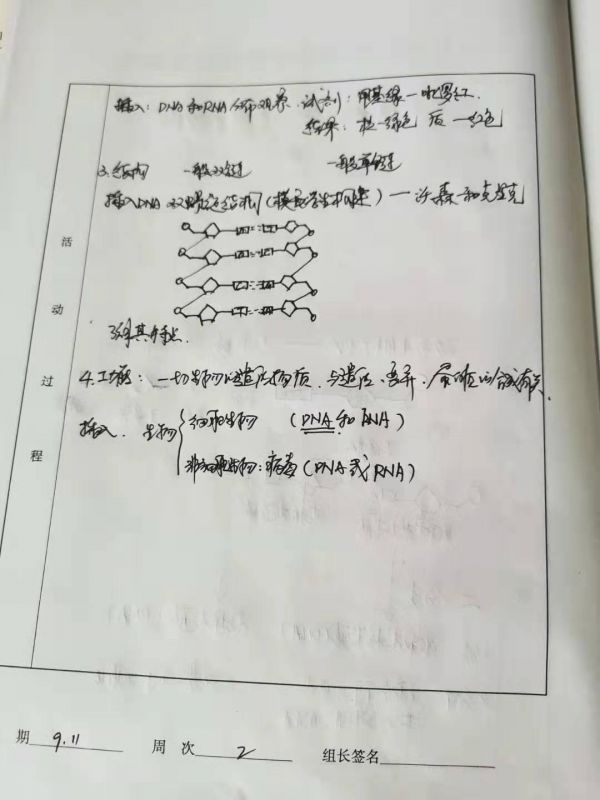 插入：DNA和RNA分布观察. 试剂：甲基绿—吡罗红.
结果：核—绿色 质—红色
3.结构 一般双链 一般单链
插入DNA双螺旋结构（模型学生构建）—沃森和克里克
活动过程
其特点.
4.功能：一切生物的遗传物质，与遗传、变异、蛋白质的合成有关.
插入. 生物 细胞生物 （DNA和RNA）
非细胞生物：病毒（DNA或RNA）
期 9.11 周 次 2 组长签名